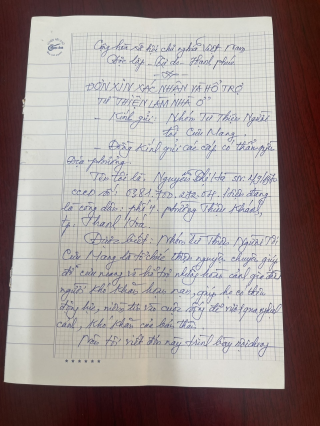 Cộng hòa xã hội chủ nghĩa Việt Nam
Độc lập - Tự do - Hạnh phúc
ĐƠN XIN XÁC NHẬN VÀ HỖ TRỢ
TỪ THIỆN LÀM NHÀ Ở
- Kính gửi: Nhóm Từ Thiện Người
tôi Cưu Mang.
- Đồng kính gửi các cấp có thẩm quyền
địa phương.
Tên tôi là: Nguyễn Thị Hà sn:
CCCD số: Hiện đang
là công dân: phố 4, phường Thiệu Khánh,
tp. Thanh Hóa.
Được biết: Nhóm Từ Thiện Người Tôi
Cưu Mang là tổ chức thiện nguyện chuyên giúp
đỡ cưu mang và hỗ trợ những hoàn cảnh gia đình
người khó khăn hoạn nạn, giúp họ có thêm
động lực, niềm tin vào cuộc sống để vượt qua nghịch
cảnh, khó khăn của bản thân.
Nay tôi viết đơn này trình bày nội dung